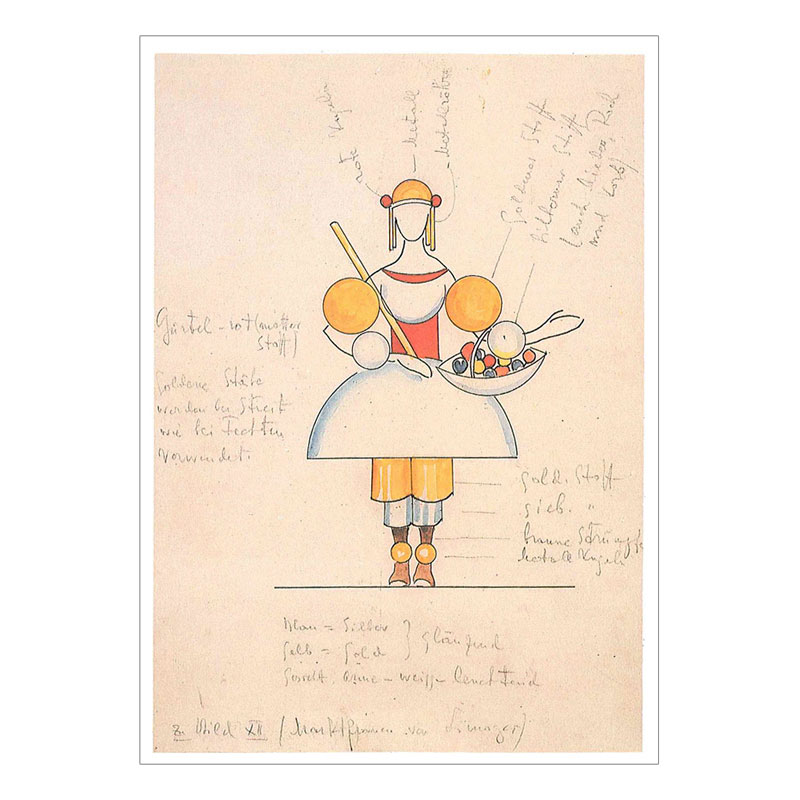 rote Kugeln
Metall
Metallröhre
Goldenes Stoff
silberner Stoff
(auch dieser Rock
und Korb)
Gürtel – rot (matter
Stoff)
Goldene Stäbe
werden bei Streit
wie bei Fechten
verwendet.
Gold. Stoff
silb. "
braune Strümpfe
Metall Kugeln
Blau = Silber
Gelb = Gold } glänzend
Gesicht, Arme – weiss – leuchtend
Zu Bild XII (Marktfrauen von Limoges)